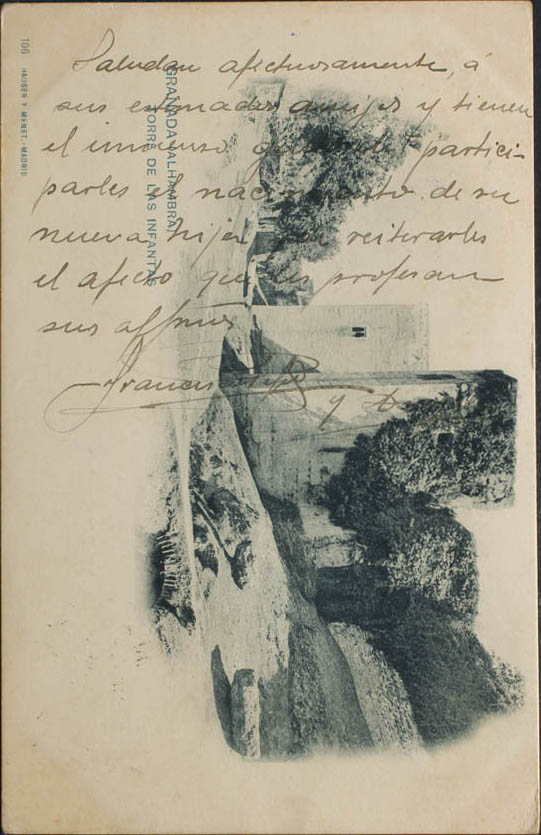 Saludan afectuosamente, á
sus estimados amigos y tienen
el inmenso gusto de partici-
parles el nacimiento de su
nueva hija y reiterarles
el afecto que les profesan
sus affmos
Francisco y
GRANADA (ALHAMBRA)
TORRE DE LAS INFANTAS
106 HAUSER Y MENET.-MADRID